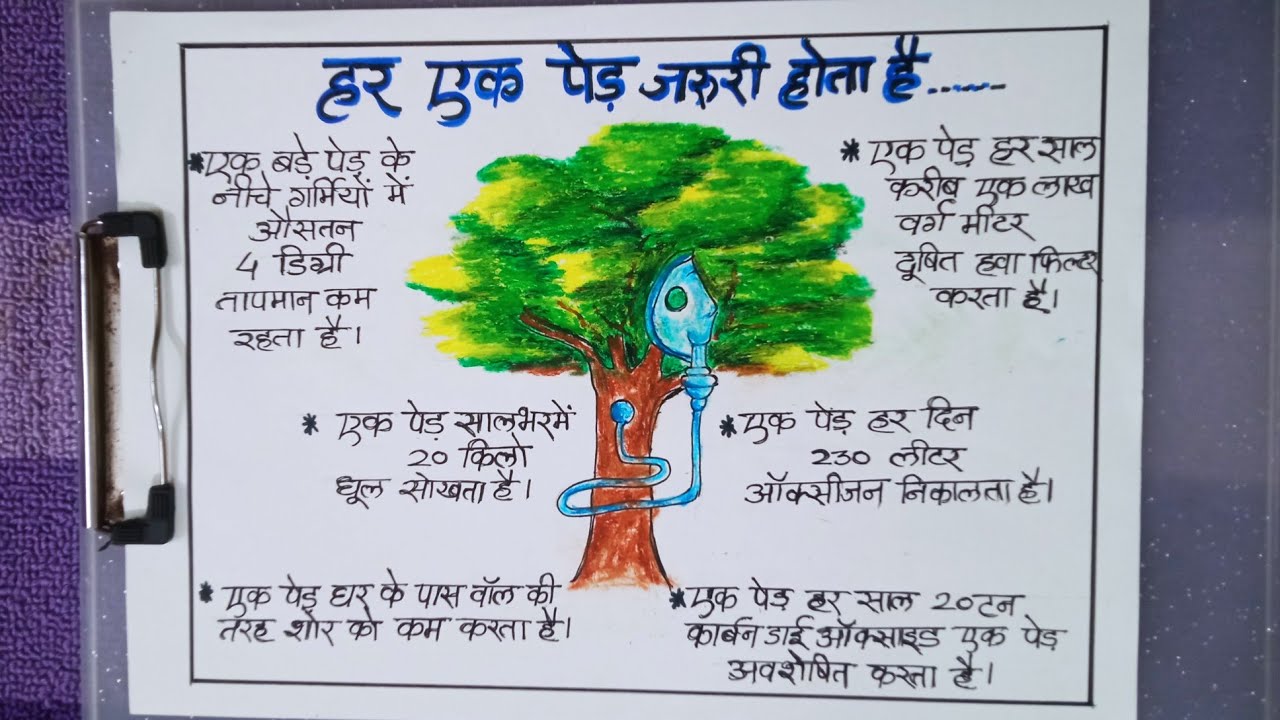 हर एक पेड़ जरुरी होता है......
* एक बड़े पेड़ के
नीचे गर्मियों में
औसतन
4 डिग्री
तापमान कम
रहता है।
* एक पेड़ हर साल
करीब एक लाख
वर्ग मीटर
दूषित हवा फिल्टर
करता है।
* एक पेड़ सालभरमें
20 किलो
धूल सोखता है।
* एक पेड़ हर दिन
230 लीटर
ऑक्सीजन निकालता है।
* एक पेड़ घर के पास वॉल की
तरह शोर को कम करता है।
* एक पेड़ हर साल 20 टन
कार्बन डाई ऑक्साइड एक पेड़
अवशोषित करता है।